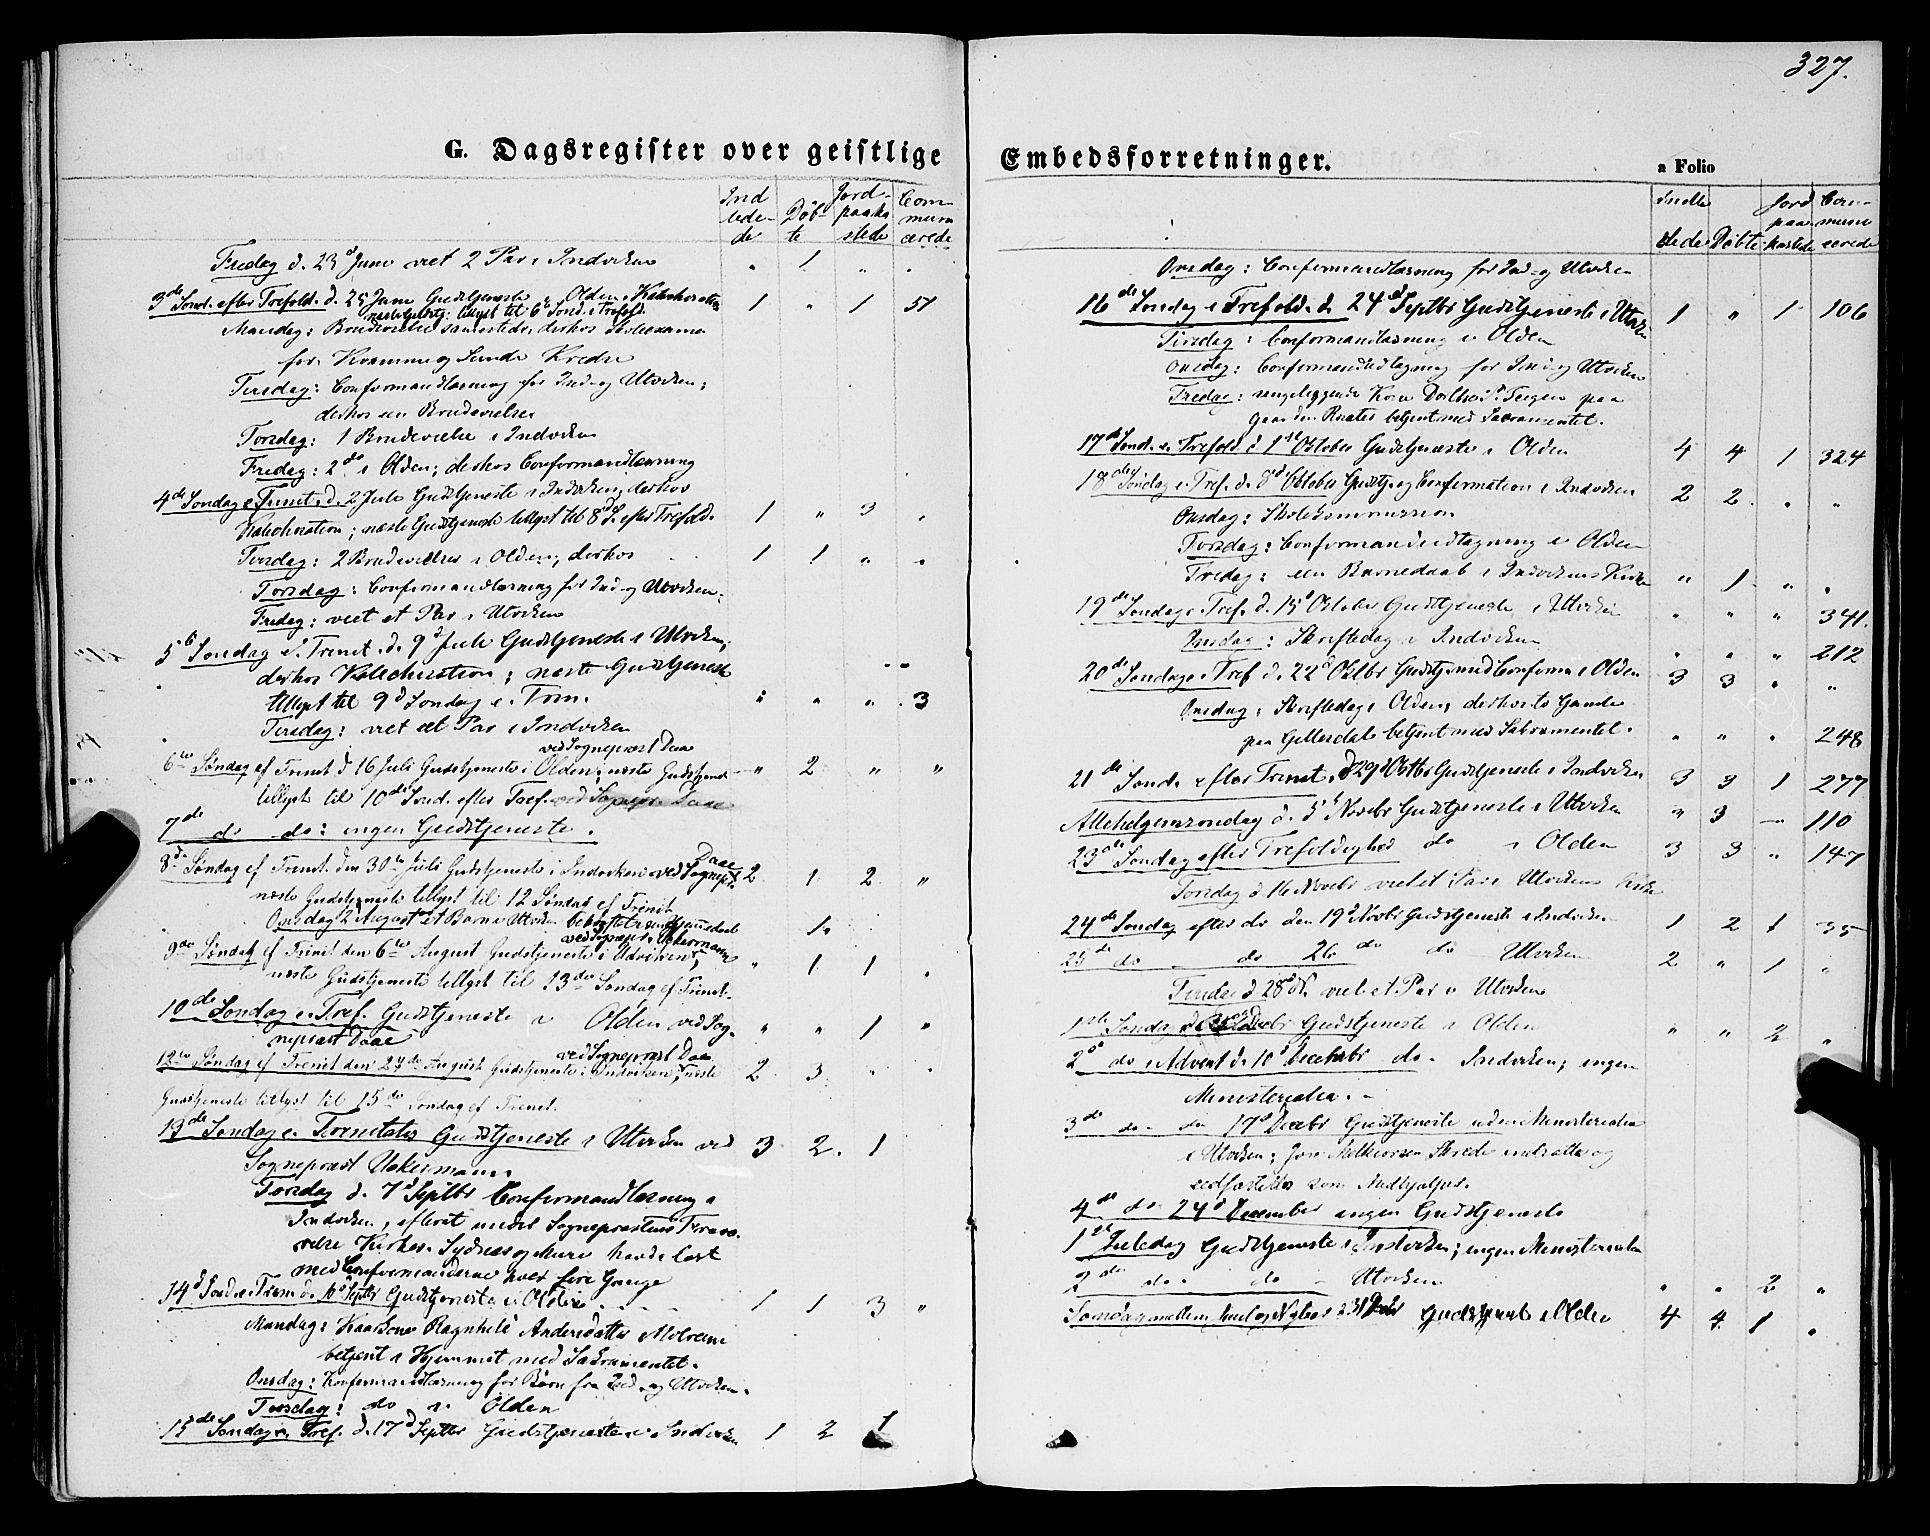 327.
G. Dagsregister over geistlige Embedsforretninger.
a Folio
Ind
lede-
de
Døb-
te
Jord-
paaka
stede
Com-
muni
cerede
Fredag d. 23 Juni viet 2 Par i Indviken " 1 " "
3de Sønd. efter Trefold. d. 25 Juni Gudstjeneste i Olden, 1 " 1 51
næste Gudstj. tillyst til 6te Sønd. i Trefold.
Mandag: Brudevielse sammesteds, derhos Skoleexamen
for og Sunde Kredse
Tirsdag: Confirmandlæsning for Ind- og Utviken;
derhos een Brudevielse
Torsdag: 1 Brudevielse i Indviken
Fredag: 2 do i Olden; derhos Confirmandlæsning
4de Søndag e. Trinit. d. 2 Juli Gudstjeneste i Indviken, derhos
Katechisation; næste Gudstjeneste tillyst til 8d S. efter Trefold. 1 " 3 "
Tirsdag: 2 Brudevielser i Olden; derhos 1 1 " "
Torsdag: Confirmandlæsning for Ind- og Utviken.
Fredag: viet et Par i Utviken
5te Søndag e. Trinit. d. 9d Juli Gudstjeneste i Utviken;
derhos Katechisation; næste Gudstjeneste
tillyst til 9d Søndag e. Trin. " " " 3
Tirsdag: viet eet Par i Indviken
ved Sognepræst Daae
6te Søndag ef Trinit d 16 Juli Gudstjeneste i Olden; næste Gudstjene " 2 " "
tillyst til 10de Sønd. efter Tref.
7de do do: ingen Gudstjeneste.
8de Søndag ef Trinit. den 30te Juli Gudstjeneste i Indviken ved Sognepr. Daae 2 1 2 "
næste Gudstjeneste tillyst til 12 Søndag ef Trinit
Onsdag 2 August et Barn i Utviken Hjemmedaab 1.
ved Sognepr. Uckermann
9de Søndag ef Trinit den 6te August Gudstjeneste i Utviken; " 1 1 "
næste Gudstjeneste tillyst til 13de Søndag ef Trinit.
10de Søndag e. Tref. Gudstjeneste i Olden ved Sog- " " 1 "
nepræst Daae
ved Sognepræst Daae
12te Søndag ef Trinit den 27de August Gudstjeneste i Indviken; næste 2 3 " "
Gudstjeneste tillyst til 15de Søndag ef Trinit.
13de Søndag e. Trinitatis Gudstjeneste i Utviken ved 3 2 1
Sognepræst Uckermann
Torsdag d. 7d Septbr Confirmandlæsning i
Indviken, efterat under Sognepræstens Fravæ-
relse Kirkes. Sydnes og Mure havde læst
med Confirmanderne hver fire Gange
14d Sønd. e. Trin d. 10d Septbr Gudstjeneste i Olden 1 1 3 "
Mandag: Ragnhild Andersdatter Melheim
betjent i Hjemmet med Sakramentet.
Onsdag: Konfirmandlæsning for Børn fra Ind- og Utviken.
Torsdag: do i Olden
15de Søndag e. Tref. d. 17d Septbr Gudstjeneste i Indviken 1 2 1
Indle
dede
Døbte
Jord
paa
kastede
Com-
muni
cerede
Onsdag: Confirmandlæsning for Ind- og Utviken
16de Søndag e Trefold. d. 24d Septbr Gudstjeneste i Utviken 1 " 1 106
Tirsdag: Confirmandlæsning i Olden
Onsdag: Confirmandudtagning for Ind- og Utviken
Fredag: sengeliggende Kone Teigen paa
Gaarden betjent med Sacramentet.
17de Sønd. e. Trefold d 1ste Oktober Gudstjeneste i Olden 4 4 1 324
18de Søndag e. Tref. d. 8d Oktober Gudstj. og Confirmation i Indviken 2 2 " "
Onsdag: Skolekommission
Torsdag: Confirmandudtagning i Olden
Fredag: een Barnedaab i Indvikens Kirke " 1 " "
19de Søndag e. Tref. d. 15d Oktober Gudstjeneste i Utviken " " " 341.
Onsdag: Skriftedag i Indviken " " " 212
20de Søndag e. Tref d. 22d Oktbr Gudstj. med Confirm. i Olden 3 3 " "
Onsdag: Skriftedag i Olden; derhos to
paa Gjellerdals betjent med Sakramentet. " " " 248
21de Sønd. efter Trinit. d 29d Octbr Gudstjeneste i Indviken 3 3 1 277
Allehelgensøndag d. 5t Novbr Gudstjeneste i Utviken " 3 - 110
23de Søndag efter Trefoldighed do i Olden 3 3 " 147
Torsdag d 16 Novbr viet et Par i Utvikens Kirke
24de Søndag efter do den 19d Novbr Gudstjeneste i Indviken 1 2 1 35
25de do do 26 do do Utviken 2 " 1 "
Tirsdag d 28d viet et Par i Utviken
1ste Søndag d Gudstjeneste i Olden " " 2 "
2d do i Advent d. 10d Decembr do - Indviken; ingen
Ministerialia.
3de do do 17d Decbr Gudstjeneste uden Ministerialia
i Utviken; indsattes og
edfæstedes som Medhjælper.
4de do 24d December ingen Gudstjeneste
1ste Juledag Gudstjeneste i Indviken; ingen Ministerialia
2den do do Utviken " " 2 "
Søndag mellem Juul og Nytaar d 31 Decbr Gudstjeneste i Olden 4 4 1 "